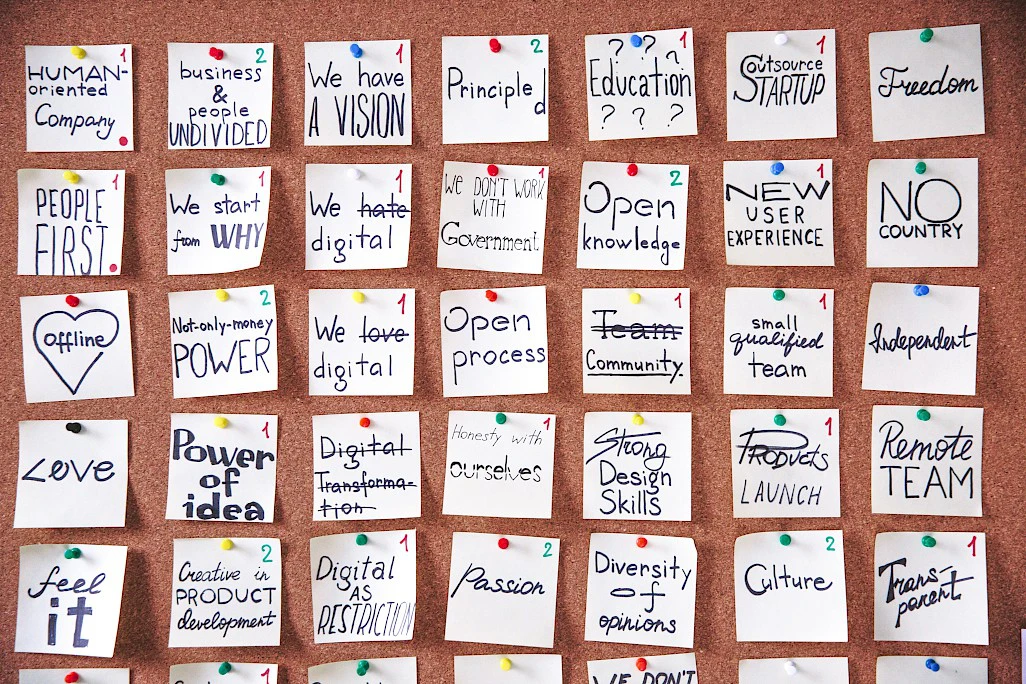 1
HUMAN-
oriented
Company
2
business
&
people
UNDIVIDED
1
We have
A VISION
2
Principled
1
? ? ?
Education
? ? ?
1
Outsource
STARTUP
Freedom
1
PEOPLE
FIRST.
1
We start
from WHY
1
We hate
digital
1
WE DON'T WORK
WITH
Government
2
Open
knowledge
1
NEW
USER
EXPERIENCE
NO
COUNTRY
offline
2
Not-only-money
POWER
1
We love
digital
Open
process
1
Team
Community
1
small
qualified
team
Independent
Love
1
Power
of
idea
Digital
Transforma-
tion
1
Honesty with
ourselves
Strong
Design
Skills
1
PRODUCTS
LAUNCH
Remote
TEAM
feel
it
2
Creative in
PRODUCT
development
1
Digital
AS
RESTRICTION
2
Passion
Diversity
of
opinions
2
Culture
1
Trans-
parent
1
1
WE DON'T